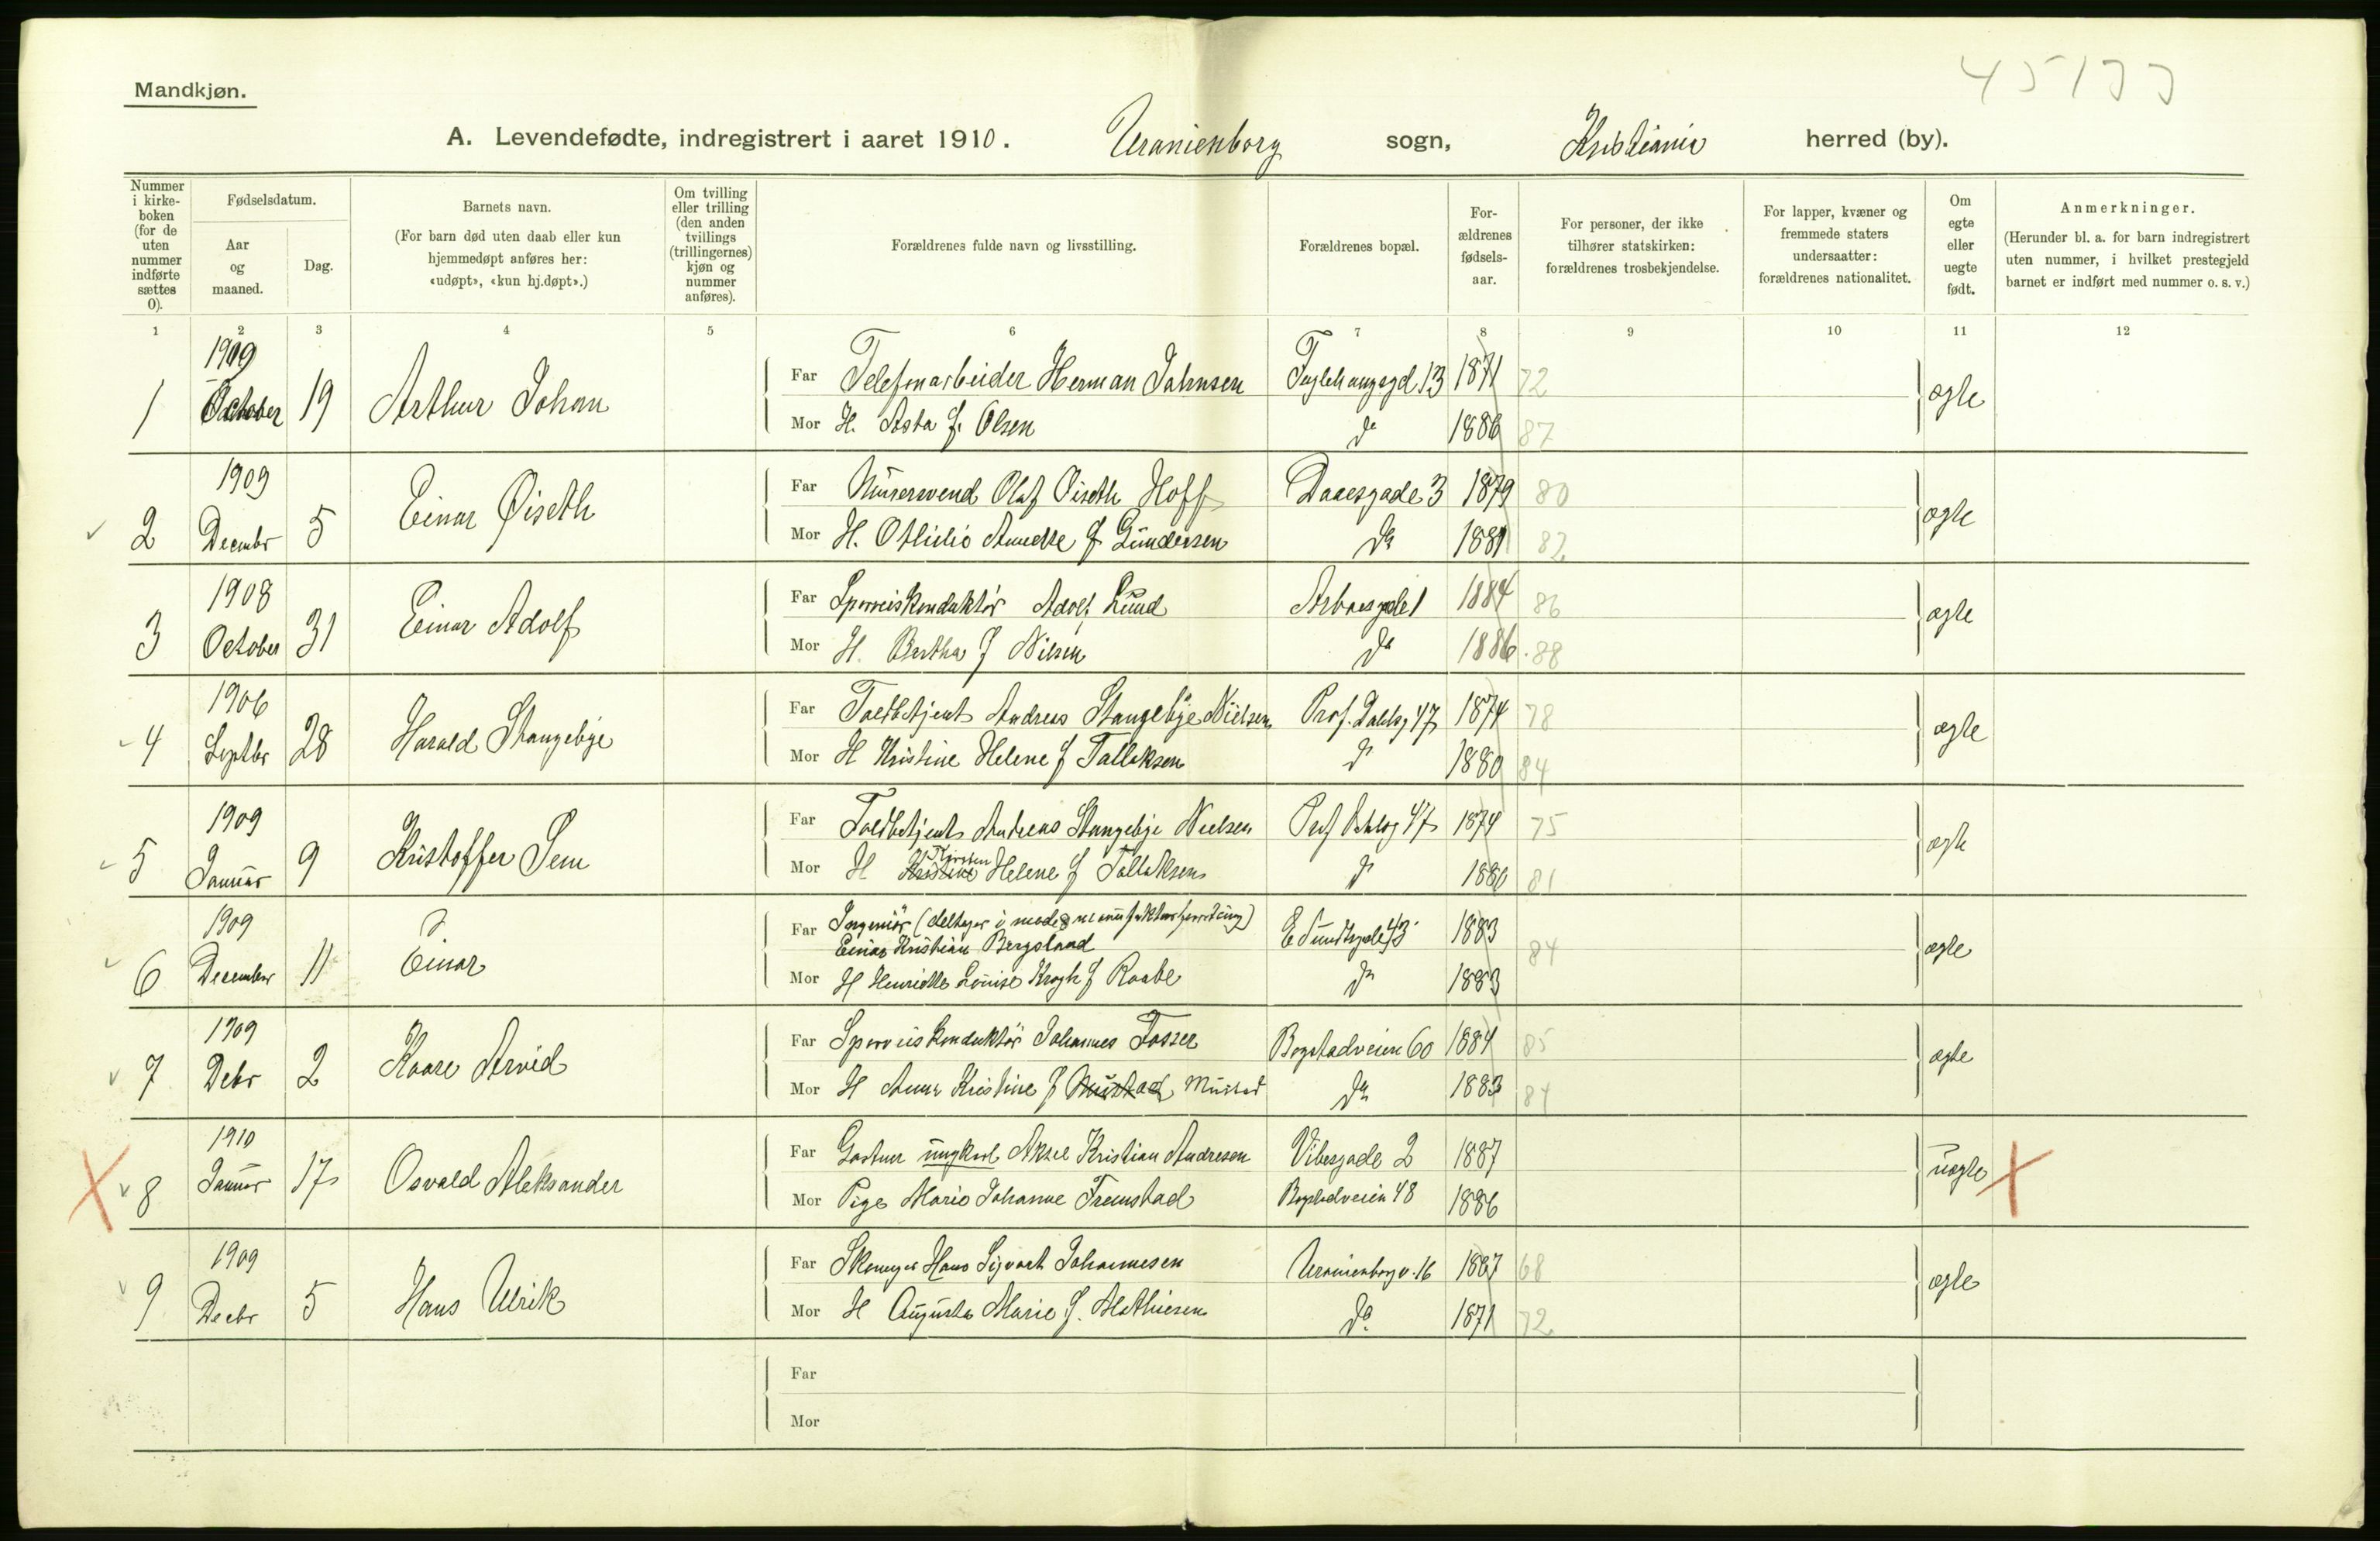 45177
Mandkjøn.
A. Levendefødte, indregistrert i aaret 1910. Uranienborg sogn, Kristiania herred (by).
Nummer i kirke- boken (for de uten nummer indførte sættes 0).
Fødselsdatum.
Aar og maaned.
Dag.
Barnets navn.
(For barn død uten daab eller kun hjemmedøpt anføres her: «udøpt», «kun hj.døpt».)
Om tvilling eller trilling (den anden tvillings (trillingernes) kjøn og nummer anføres).
Forældrenes fulde navn og livsstilling.
Forældrenes bopæl.
For- ældrenes fødsels- aar.
For personer, der ikke tilhører statskirken: forældrenes trosbekjendelse.
For lapper, kvæner og fremmede staters undersaatter: forældrenes nationalitet.
Om egte eller uegte født.
Anmerkninger.
(Herunder bl. a. for barn indregistrert uten nummer, i hvilket prestegjeld barnet er indført med nummer o. s. v.)
1 2 3 4 5 6 7 8 9 10 11 12
1 1909 October 19 Arthur Johan
Far Telefonarbeider Herman Johnsen 13 1871 72 ægte
Mor H. Asta f. Olsen do 1886 87
2 1909 Decembr 5 Einar Øiseth
Far Murersvend Olaf Øiseth Hoff Daaesgade 3 1879 80 ægte
Mor H. Othilie Annette f Gundersen do 1881 82
3 1908 October 31 Einar Adolf
Far Sporveiskonduktør Adolf Lund Arbosgade 1 1884 86 ægte
Mor H. Bertha f Nilsen do 1886 . 88
4 1906 Septbr 28 Harald Stangebye
Far Toldbetjent Andreas Stangebye Nielsen Prof. Dahlsg 47 1874 78 ægte
Mor H Kristine Helene f Tallaksen do 1880 84
5 1909 Januar 9 Kristoffer Sem
Far Toldbetjent Andreas Stangebye Nielsen Prof Dahlsg 47 1874 75 ægte
Mor H Kristine Kirsten Helene f Tallaksen do 1880 81
6 1909 December 11 Einar
Far Ingeniør (deltager i forretning)
Einar Kristian Bergsland E Sundtsgade 43 1883 84 ægte
Mor H Henriette Louise Krogh f Raabe do 1883
7 1909 Debr 2 Kaare Arvid
Far Sporveiskonduktør Johannes Fosser Bogstadveien 60 1884 85 ægte
Mor H Anna Kristine f Mustad Mustad do 1883 84
8 1910 Januar 17 Osvald Aleksander
Far Gartner ungkarl Aksel Kristian Andresen Vibesgade 2 1887 uægte
Mor Pige Marie Johanne Fremstad Bogstadveien 48 1886
9 1909 Decbr 5 Hans Ulrik
Far Skomager Hans Sigvart Johannesen Uranienborgv. 16 1867 68 ægte
Mor H Augusta Marie f. Mathiesen do 1871 72
Far
Mor